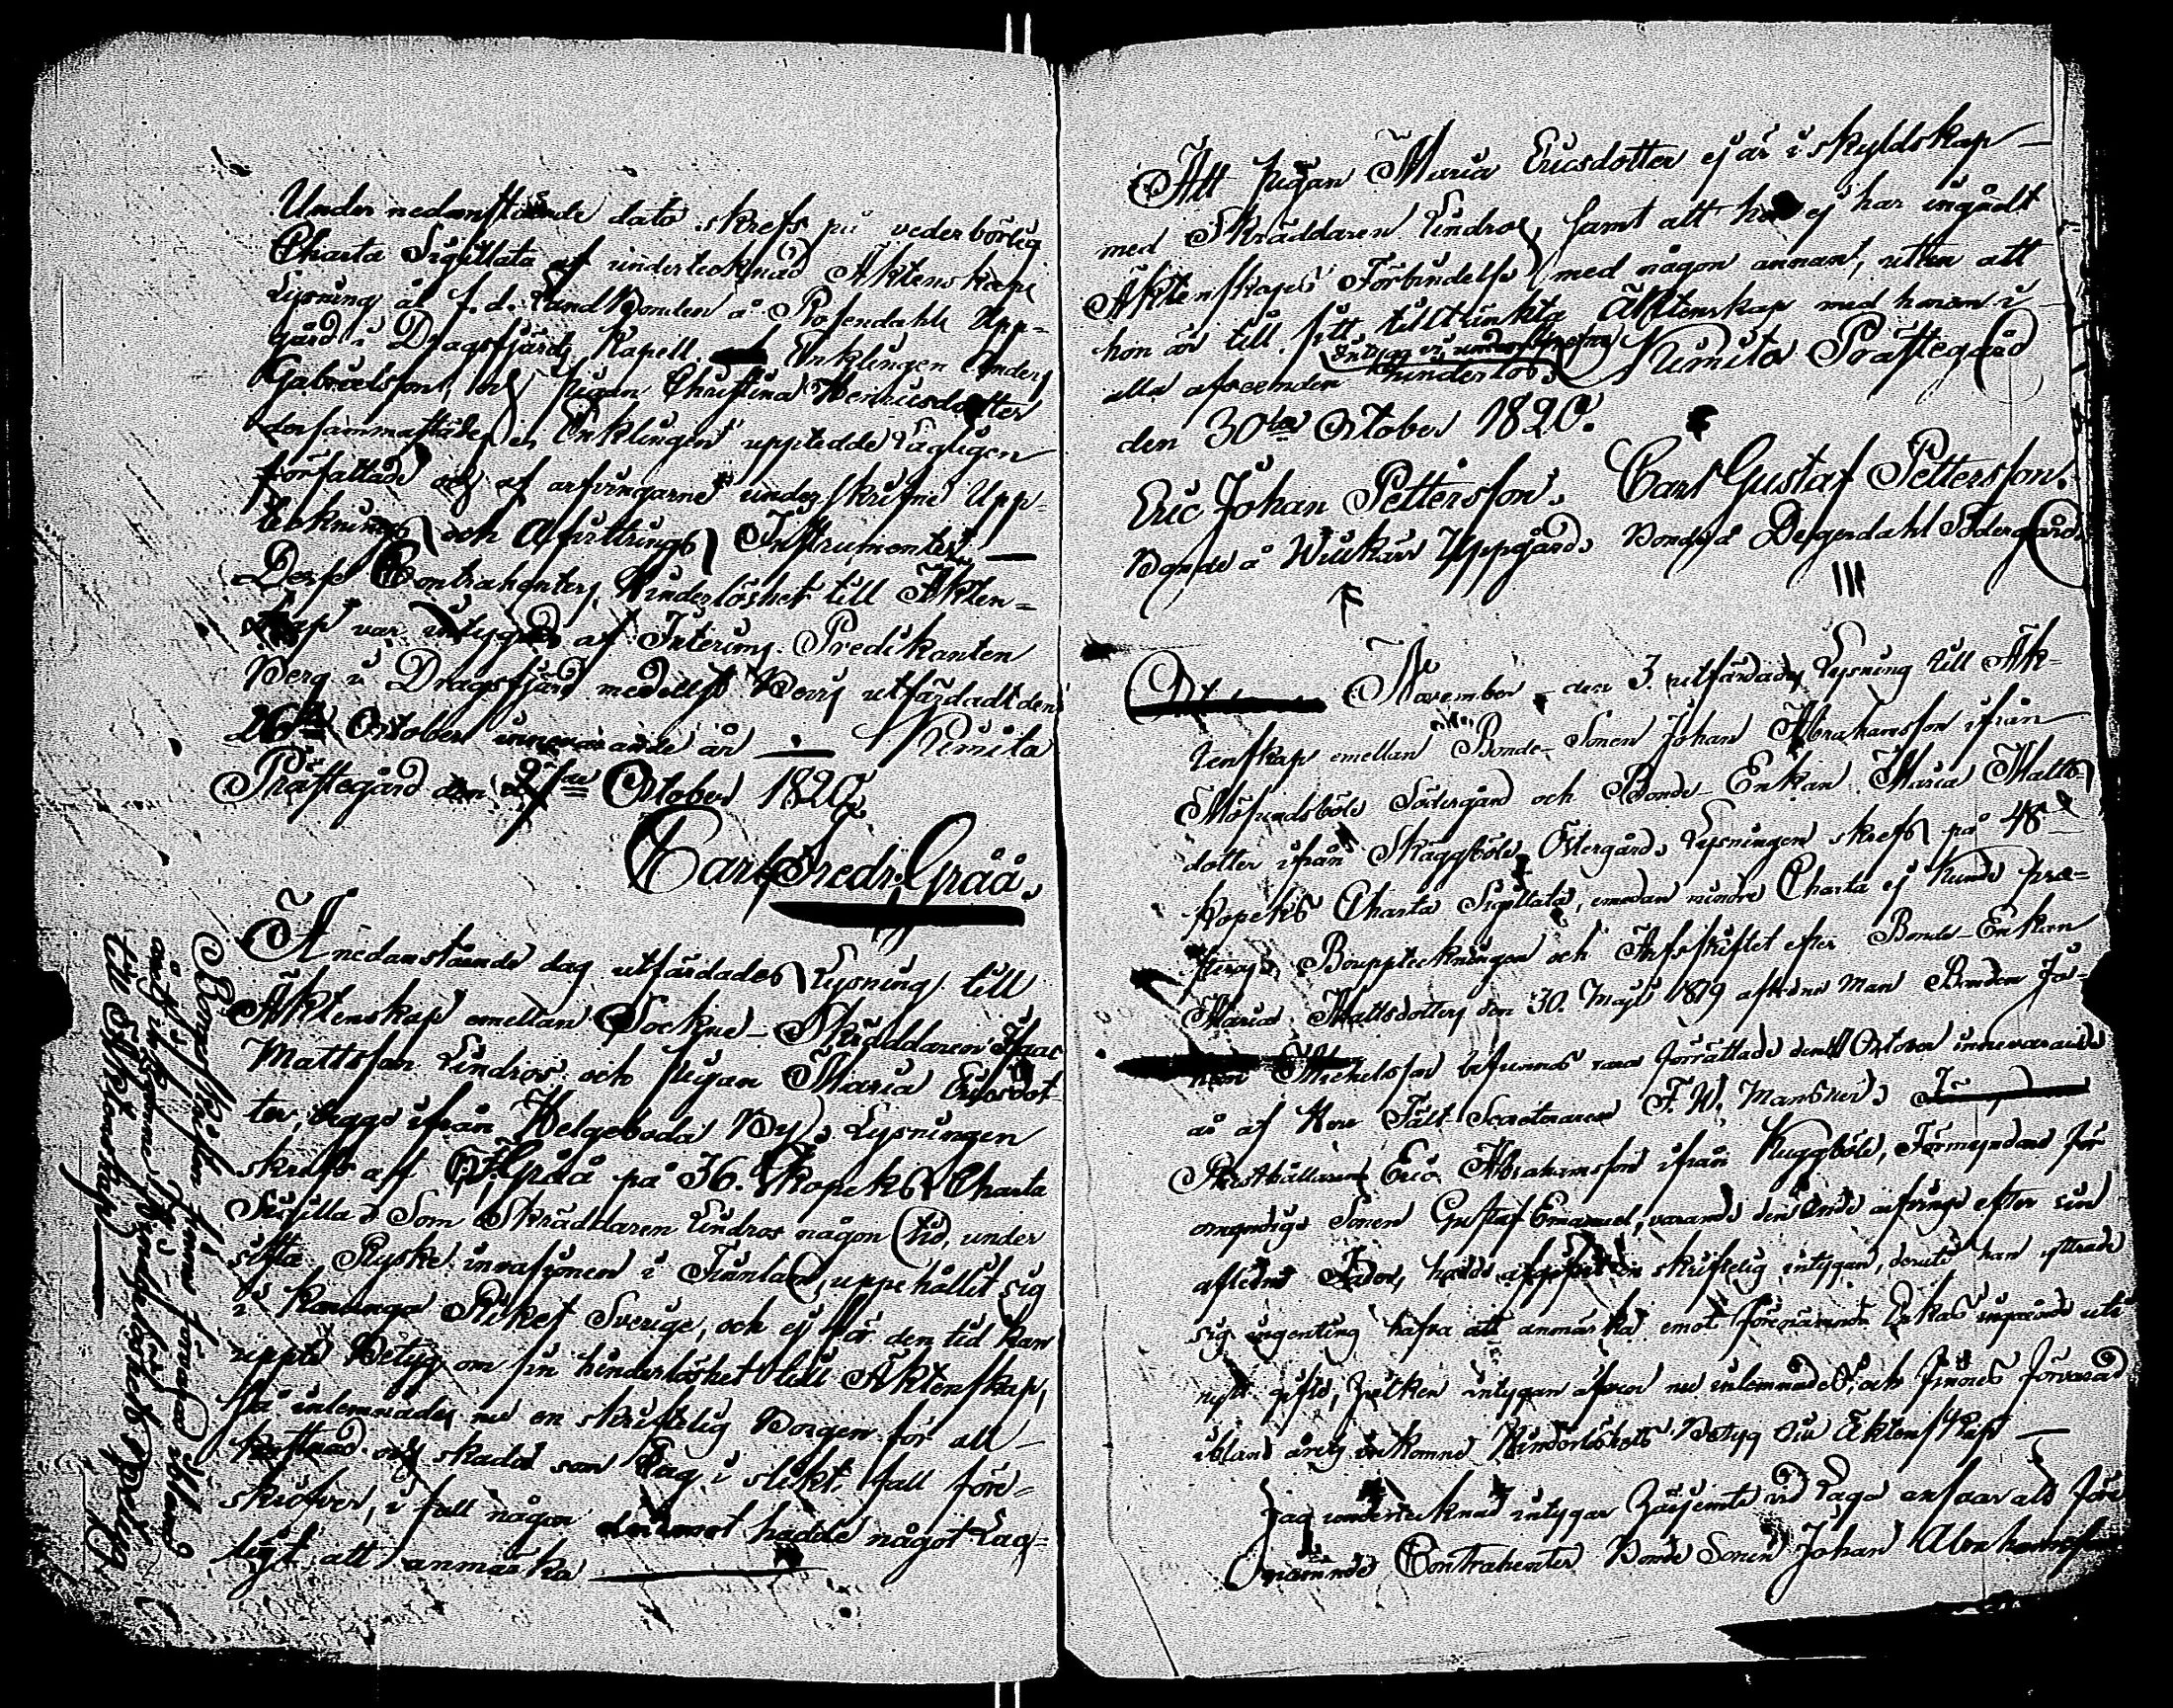 Under nedanstående dato skrefs på vederbörlig
Charta Sigillata af undertecknad Äktenskaps
Lysning åt f.d. Landbonden å Rosendahls Upp-
gård i Dragsfjärds Kapell Enklingen Anders
Gabrielsson, och Pigan Christina Henricsdotter
dersammastädes, Enklingen uppteddе Lagligen
författade och af arfvingarne underskrifne Upp-
tecknings och Afvittrings Instrumenter. —
Desse Contrahenters Hinderlöshet till Äkten-
skap var intygad af Interims Predikanten
Berg i Dragsfjärd medelst Bevis utfärdadt den
26te October innevarande år — Kimito
Prästegård den 27de October 1820.
Carl Fredr. Gråå.
Å nedanstående dag utfärdades Lysning till
Äktenskap emellan Sockne-Skräddaren Isaac
Mattsson Lindros och Pigan Maria Ericsdot-
ter, begge ifrån Helgeboda By. Lysningen
skrefs af C.F. Gråå på 36. Kopeks Charta
Sigillata. Som Skräddaren Lindros någon tid, under
sista Ryske invasionen i Finland, uppehållit sig
i Konunga Riket Sverige, och ej för den tid kan
uppte Betyg om sin hinderlöshet till Äktenskap,
så inlemnades nu en skriftelig Borgen för all
kostnad och skada som Lag i slikt fall före-
skrifver, i fall någon hade något Lag-
ligt att anmärka
Borgesskriften finns förvarad ibland
årets inkomne Hinderlöshets Betyg
till Äktenskap —
Att Pigan Maria Ericsdotter ej är i skyldskap —
med Skräddaren Lindros, samt att hon ej har ingådt
Äktenskaps Förbindelse med någon annan, utan att
hon är till sitt tilltänkta Äktenskap med honom i
alla afseenden hinderlös, Intyga vi underskrefne Kimito Prästegård
den 30de October 1820.
Eric Johan Pettersson. Carl Gustaf Pettersson.
Bonde å Wiikärr Uppgård. Bonde å Degerdahl Södergård.
November den 3. utfärdades Lysning till Äk-
tenskap emellan Bonde-Sonen Johan Abrahamsson ifrån
Mösundsböle Södergård och Bonde-Enkan Maria Matts-
dotter ifrån Skäggböle Östergård. Lysningen skrefs på 48
Kopeks Charta Sigillata, emedan mindre Charta ej kunde præ-
steras. Bouppteckningen och Arfsskiftet efter Bonde-Enkan
Maria Mattsdotters den 30. Maji 1819 aflidne Man Bonden Jo-
han Michelsson befunnos vara förrättade den October innevarande
år af Herr Fält-Secreteraren F. W. Mansner.
Rusthållaren Eric Abrahamsson ifrån Kuggböle, Förmyndare för
omyndige Sonen Gustaf Emanuel, varande den enda arfvinge efter sin
aflidne Fader, hade afgifvit en skriftelig intygan, deruti han yttrade
sig ingenting hafva att anmärka emot förenämnde Enkas ingående uti
nytt gifte, hvilken intygan äfven nu inlemnades, och finnes förvarad
ibland årets inkomne Hinderlöshets Betyg till Äktenskap —
Jag undertecknad intygar härjemte vid Laga ansvar att före
nämnde Contrahenter Bonde Sonen Johan Abrahamsson